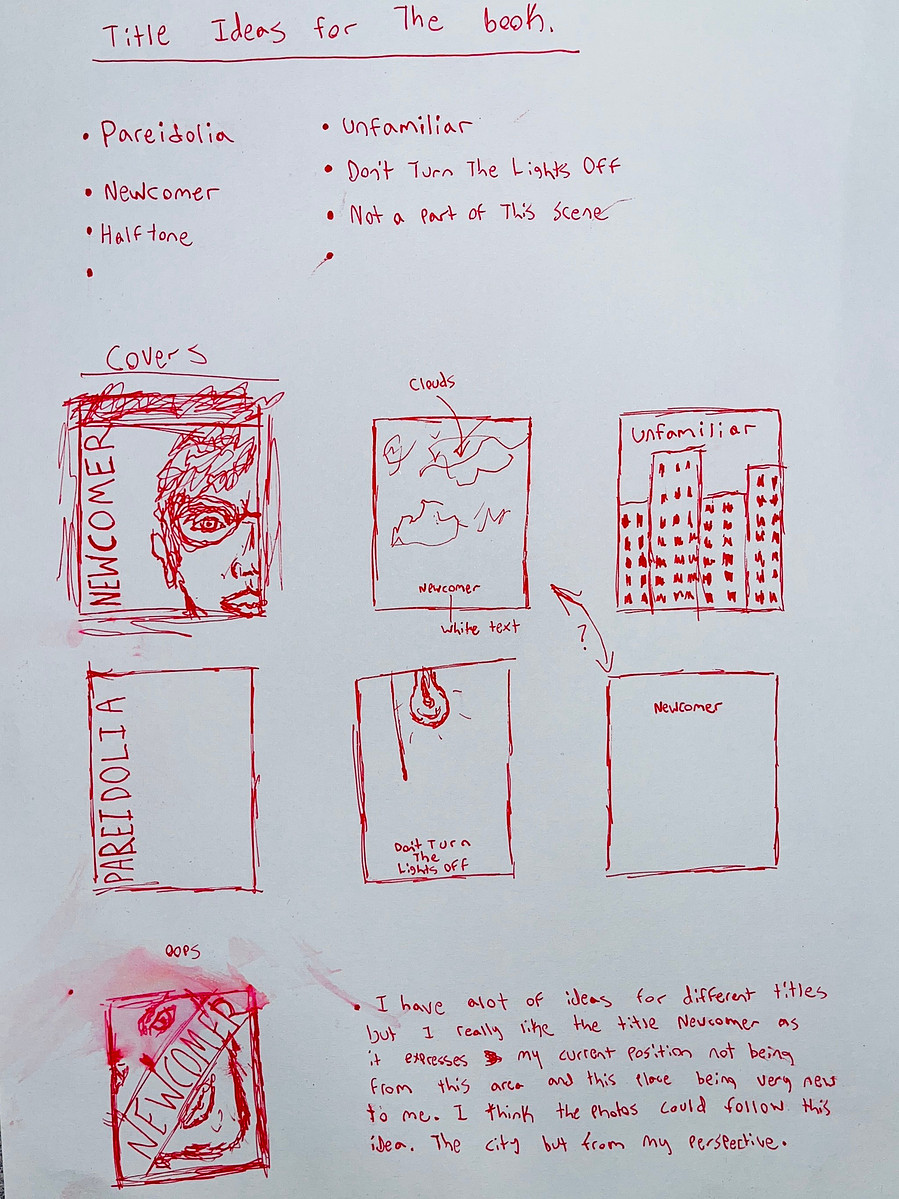 Title Ideas for The book.
• Pareidolia
• Newcomer
• Halftone
•
• Unfamiliar
• Don't Turn The Lights Off
• Not a part of This Scene
•
Covers
NEWCOMER
Clouds
Newcomer
White text
Unfamiliar
?
PAREIDOLIA
Don't Turn
The
Lights Off
Newcomer
oops
NEWCOMER
• I have alot of ideas for different titles
but I really like the title Newcomer as
it expresses my current position not being
from this area and this place being very new
to me. I think the photos could follow this
idea. The city but from my perspective.